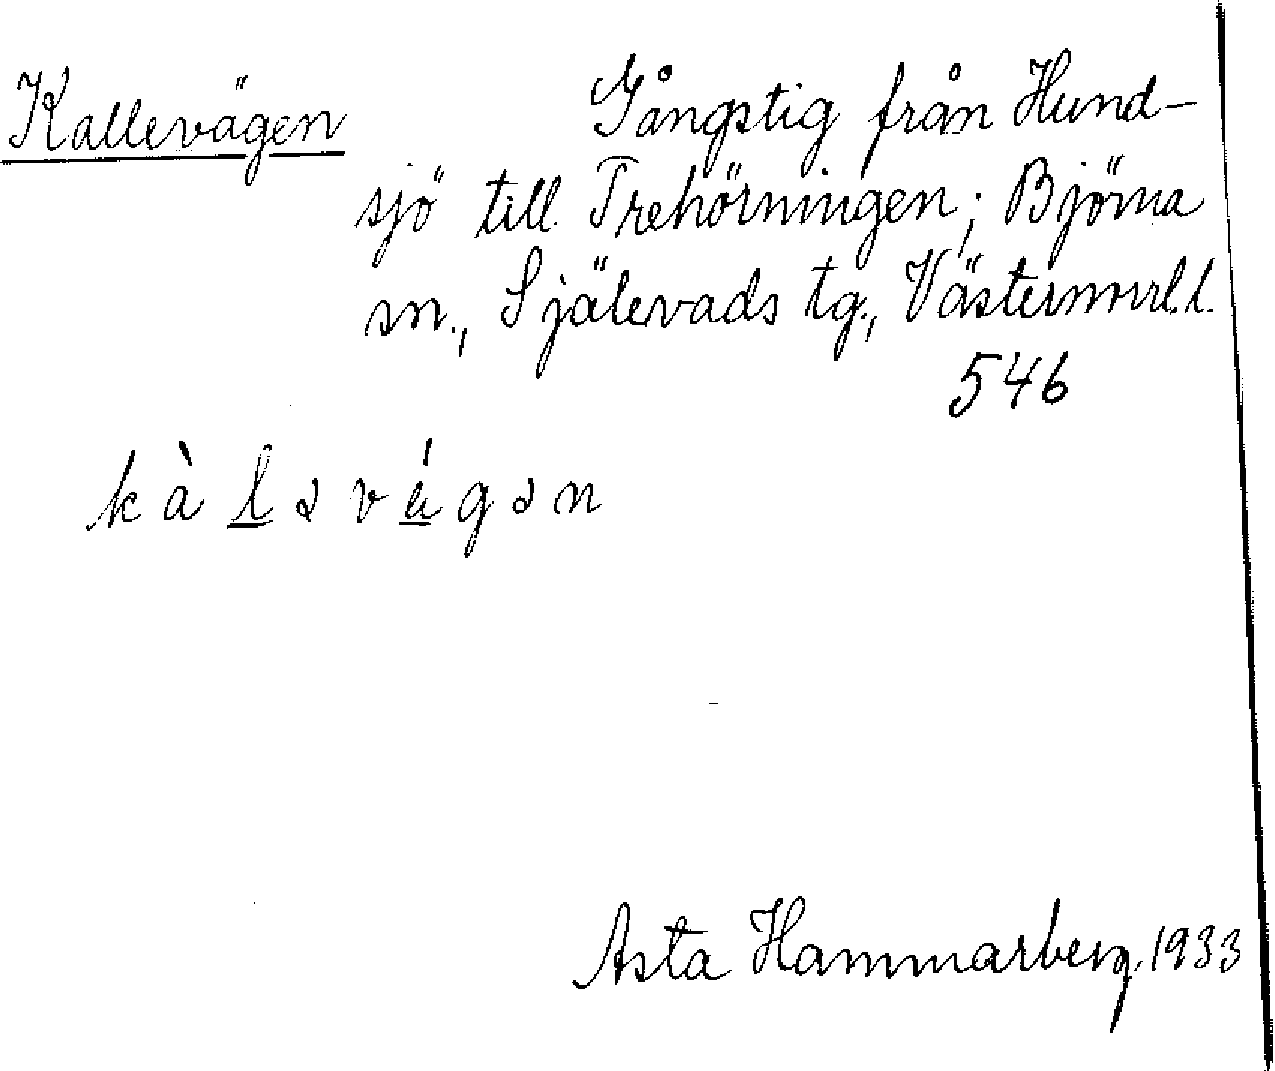 Kallevägen Gångstig från Hund-
sjö till Trehörningen; Björna
sn., Själevads tg., Västernorrl.l.
546
kàləvágən
Asta Hammarberg. 1933